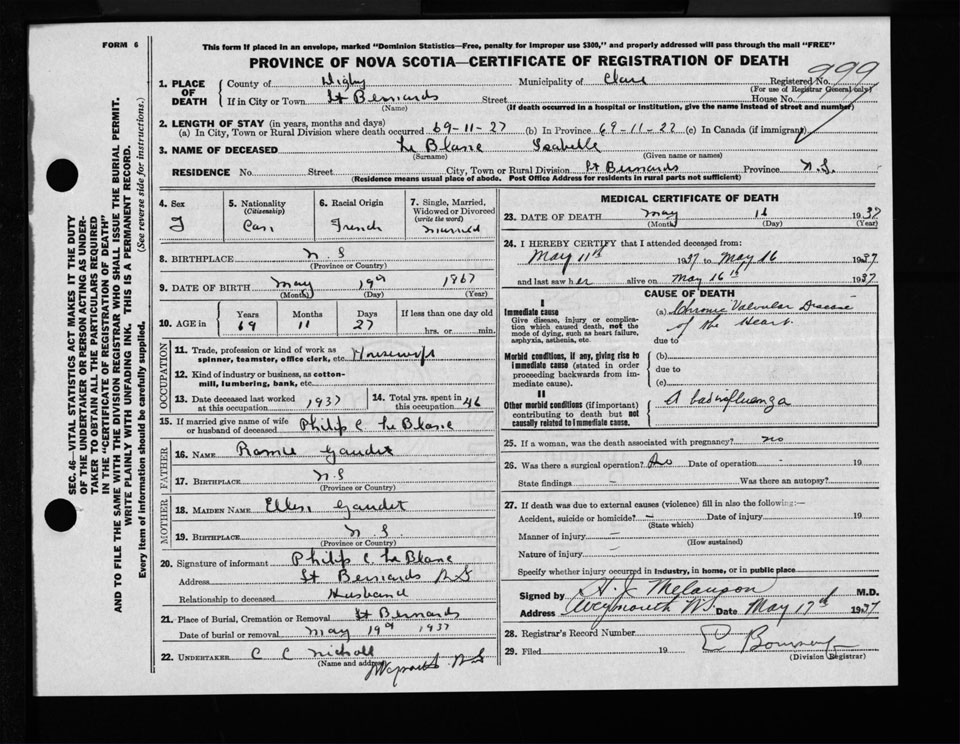 FORM 6
This form if placed in an envelope, marked "Dominion Statistics—Free, penalty for improper use $300," and properly addressed will pass through the mail "FREE"
PROVINCE OF NOVA SCOTIA—CERTIFICATE OF REGISTRATION OF DEATH
999
1. PLACE OF DEATH County of Digby Municipality of Clare Registered No.
(For use of Registrar General only)
If in City or Town St Bernards Street House No.
(Name) (If death occurred in a hospital or institution, give the name instead of street and number)
2. LENGTH OF STAY (in years, months and days)
(a) In City, Town or Rural Division where death occurred 69-11-27 (b) In Province 69-11-27 (c) In Canada (if immigrant)
3. NAME OF DECEASED Le Blanc Isabelle
(Surname) (Given name or names)
RESIDENCE No. Street City, Town or Rural Division St Bernards Province N.S.
(Residence means usual place of abode. Post Office Address for residents in rural parts not sufficient)
4. Sex 5. Nationality (Citizenship) 6. Racial Origin 7. Single, Married, Widowed or Divorced (write the word)
F Can French Married
8. BIRTHPLACE N.S
(Province or Country)
9. DATE OF BIRTH May 19th 1867
(Month) (Day) (Year)
10. AGE in Years Months Days If less than one day old
69 11 27 hrs. or min.
OCCUPATION
11. Trade, profession or kind of work as spinner, teamster, office clerk, etc. Housewife
12. Kind of industry or business, as cotton-mill, lumbering, bank, etc.
13. Date deceased last worked at this occupation 1937 14. Total yrs. spent in this occupation 46
15. If married give name of wife or husband of deceased Philip C Le Blanc
FATHER
16. NAME Gaudet
17. BIRTHPLACE N.S
(Province or Country)
MOTHER
18. MAIDEN NAME Ellen Gaudet
19. BIRTHPLACE N S
(Province or Country)
20. Signature of informant Philip C Le Blanc
Address St Bernards N S
Relationship to deceased Husband
21. Place of Burial, Cremation or Removal St Bernards
Date of burial or removal May 19th 1937
22. UNDERTAKER C C Nicholl
(Name and address) N S
MEDICAL CERTIFICATE OF DEATH
23. DATE OF DEATH May 16 1937
(Month) (Day) (Year)
24. I HEREBY CERTIFY that I attended deceased from:
May 11th 1937 to May 16 1937
and last saw her alive on May 16th 1937
CAUSE OF DEATH
I
Immediate cause (a) Chronic Valvular Disease of the Heart.
Give disease, injury or complication which caused death, not the mode of dying, such as heart failure, asphyxia, asthenia, etc.
due to
Morbid conditions, if any, giving rise to immediate cause (stated in order proceeding backwards from immediate cause).
(b)
due to
(c)
II
Other morbid conditions (if important) contributing to death but not causally related to immediate cause.
A bad influenza
25. If a woman, was the death associated with pregnancy? no
26. Was there a surgical operation? No Date of operation - 19
State findings — Was there an autopsy?
27. If death was due to external causes (violence) fill in also the following:—
Accident, suicide or homicide? — Date of injury 19
(State which)
Manner of injury —
(How sustained)
Nature of injury —
Specify whether injury occurred in industry, in home, or in public place
Signed by H. J. Melanson M.D.
Address Weymouth N.S. Date May 17th 1937
28. Registrar's Record Number
29. Filed 19
(Division Registrar)
SEC. 46—VITAL STATISTICS ACT MAKES IT THE DUTY
OF THE UNDERTAKER OR PERSON ACTING AS UNDER-
TAKER TO OBTAIN ALL THE PARTICULARS REQUIRED
IN THE "CERTIFICATE OF REGISTRATION OF DEATH"
AND TO FILE THE SAME WITH THE DIVISION REGISTRAR WHO SHALL ISSUE THE BURIAL PERMIT.
WRITE PLAINLY WITH UNFADING INK. THIS IS A PERMANENT RECORD.
Every item of information should be carefully supplied. (See reverse side for instructions.)